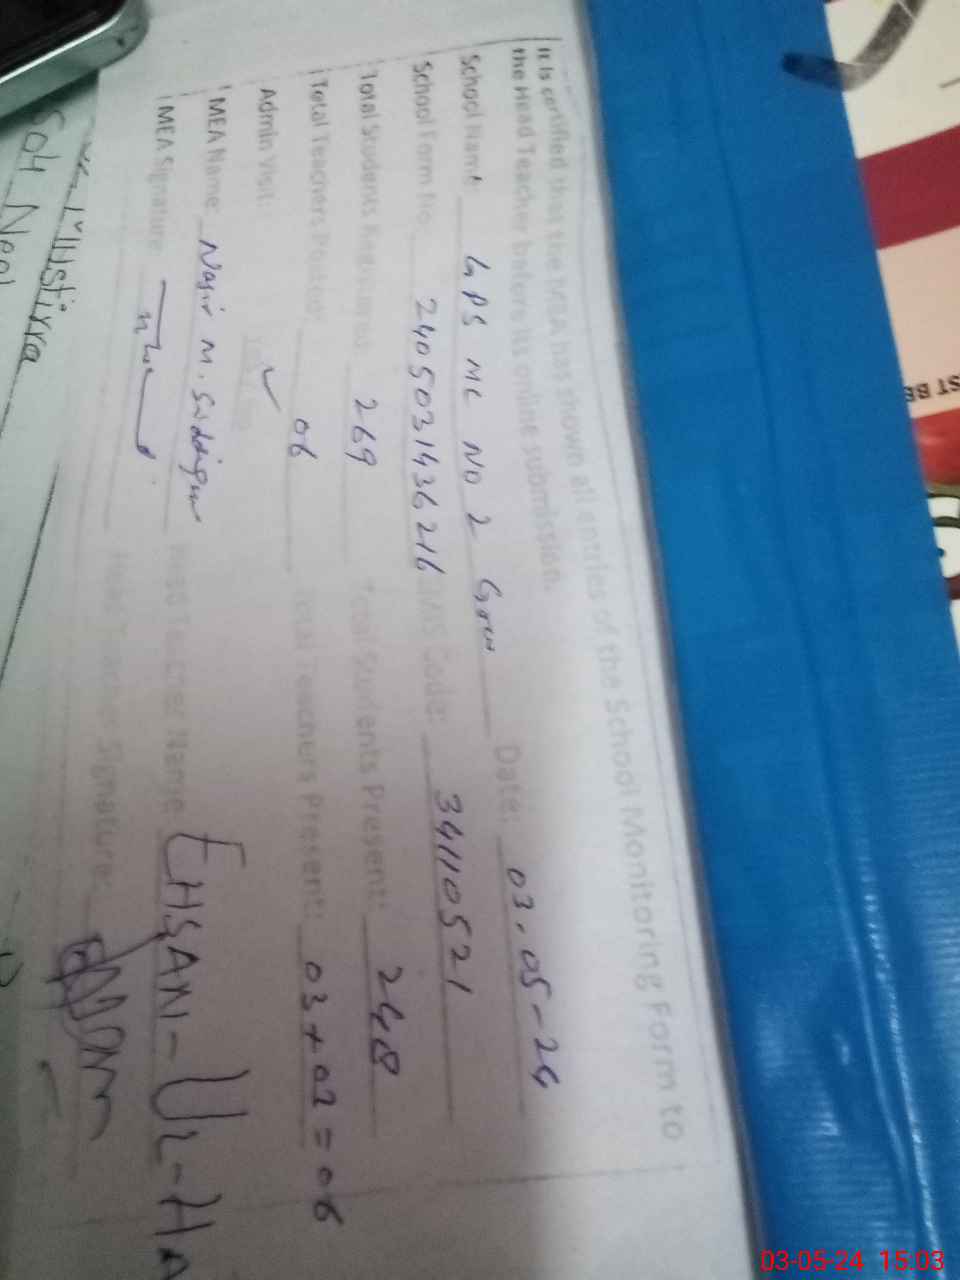 It is certified that the MEA has shown all entries of the School Monitoring Form to
the Head Teacher before its online submission.
School Name: GPS MC NO 2 Date: 03.05-24
School Form No: 2405031436216 EMIS Code: 34110521
Total Students Enrolment: 269 Total Students Present: 248
Total Teachers Posted: 06 Total Teachers Present: 03+02=06
Admin Visit: ✓
MEA Name: Nasir M. Head Teacher Name: EHSAN-UL-HA
MEA Signature: Head Teacher Signature:
03-05-24 15:03